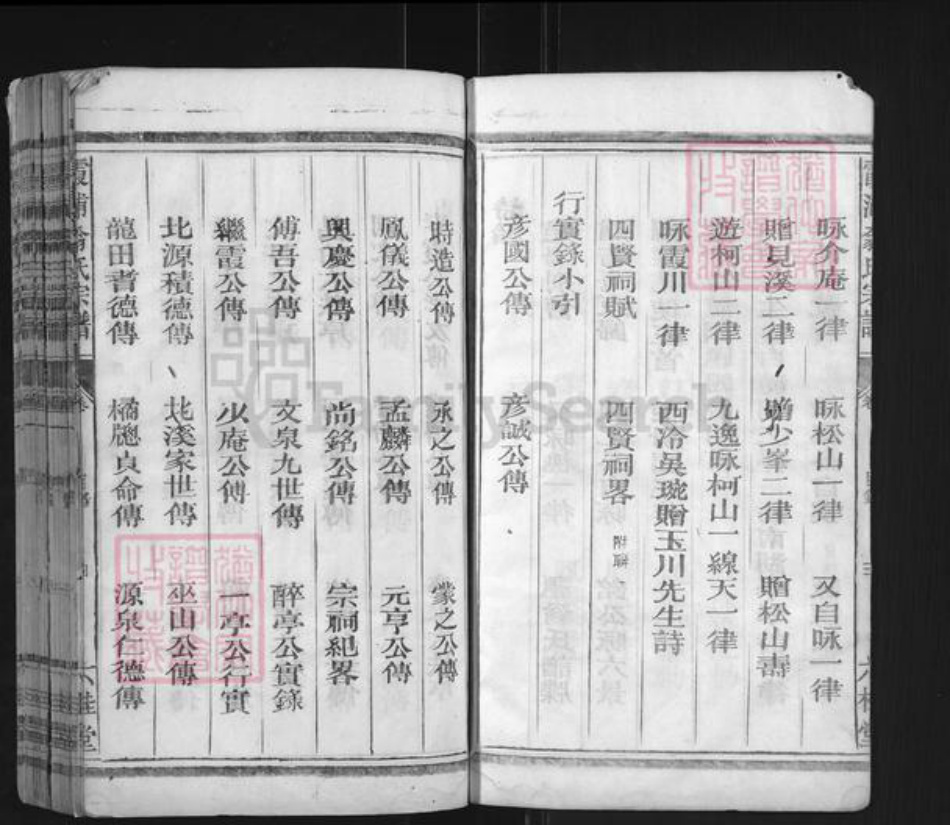 咏介庵一律 咏松山一律 又自咏一律
贈見溪二律 贈少峯二律 贈松山壽
遊柯山二律 九逸咏柯山一線天一律
咏霞川一律 西泠吳琬贈玉川先生詩
四賢祠賦 四賢祠畧 附聯
行實錄小引
彥國公傳 彥誠公傳
時造公傳 承之公傳 蒙之公傳
鳳儀公傳 孟麟公傳 元亨公傳
興慶公傳 尚銘公傳 宗祠紀畧
傅吾公傳 文泉九世傳 醉亭公實錄
繼霞公傳 少庵公傳 一亭公行實
北源積德傳 北溪家世傳 巫山公傳
龍田耆德傳 橘牕貞命傳 源泉仁德傳
六桂堂
FamilySearch